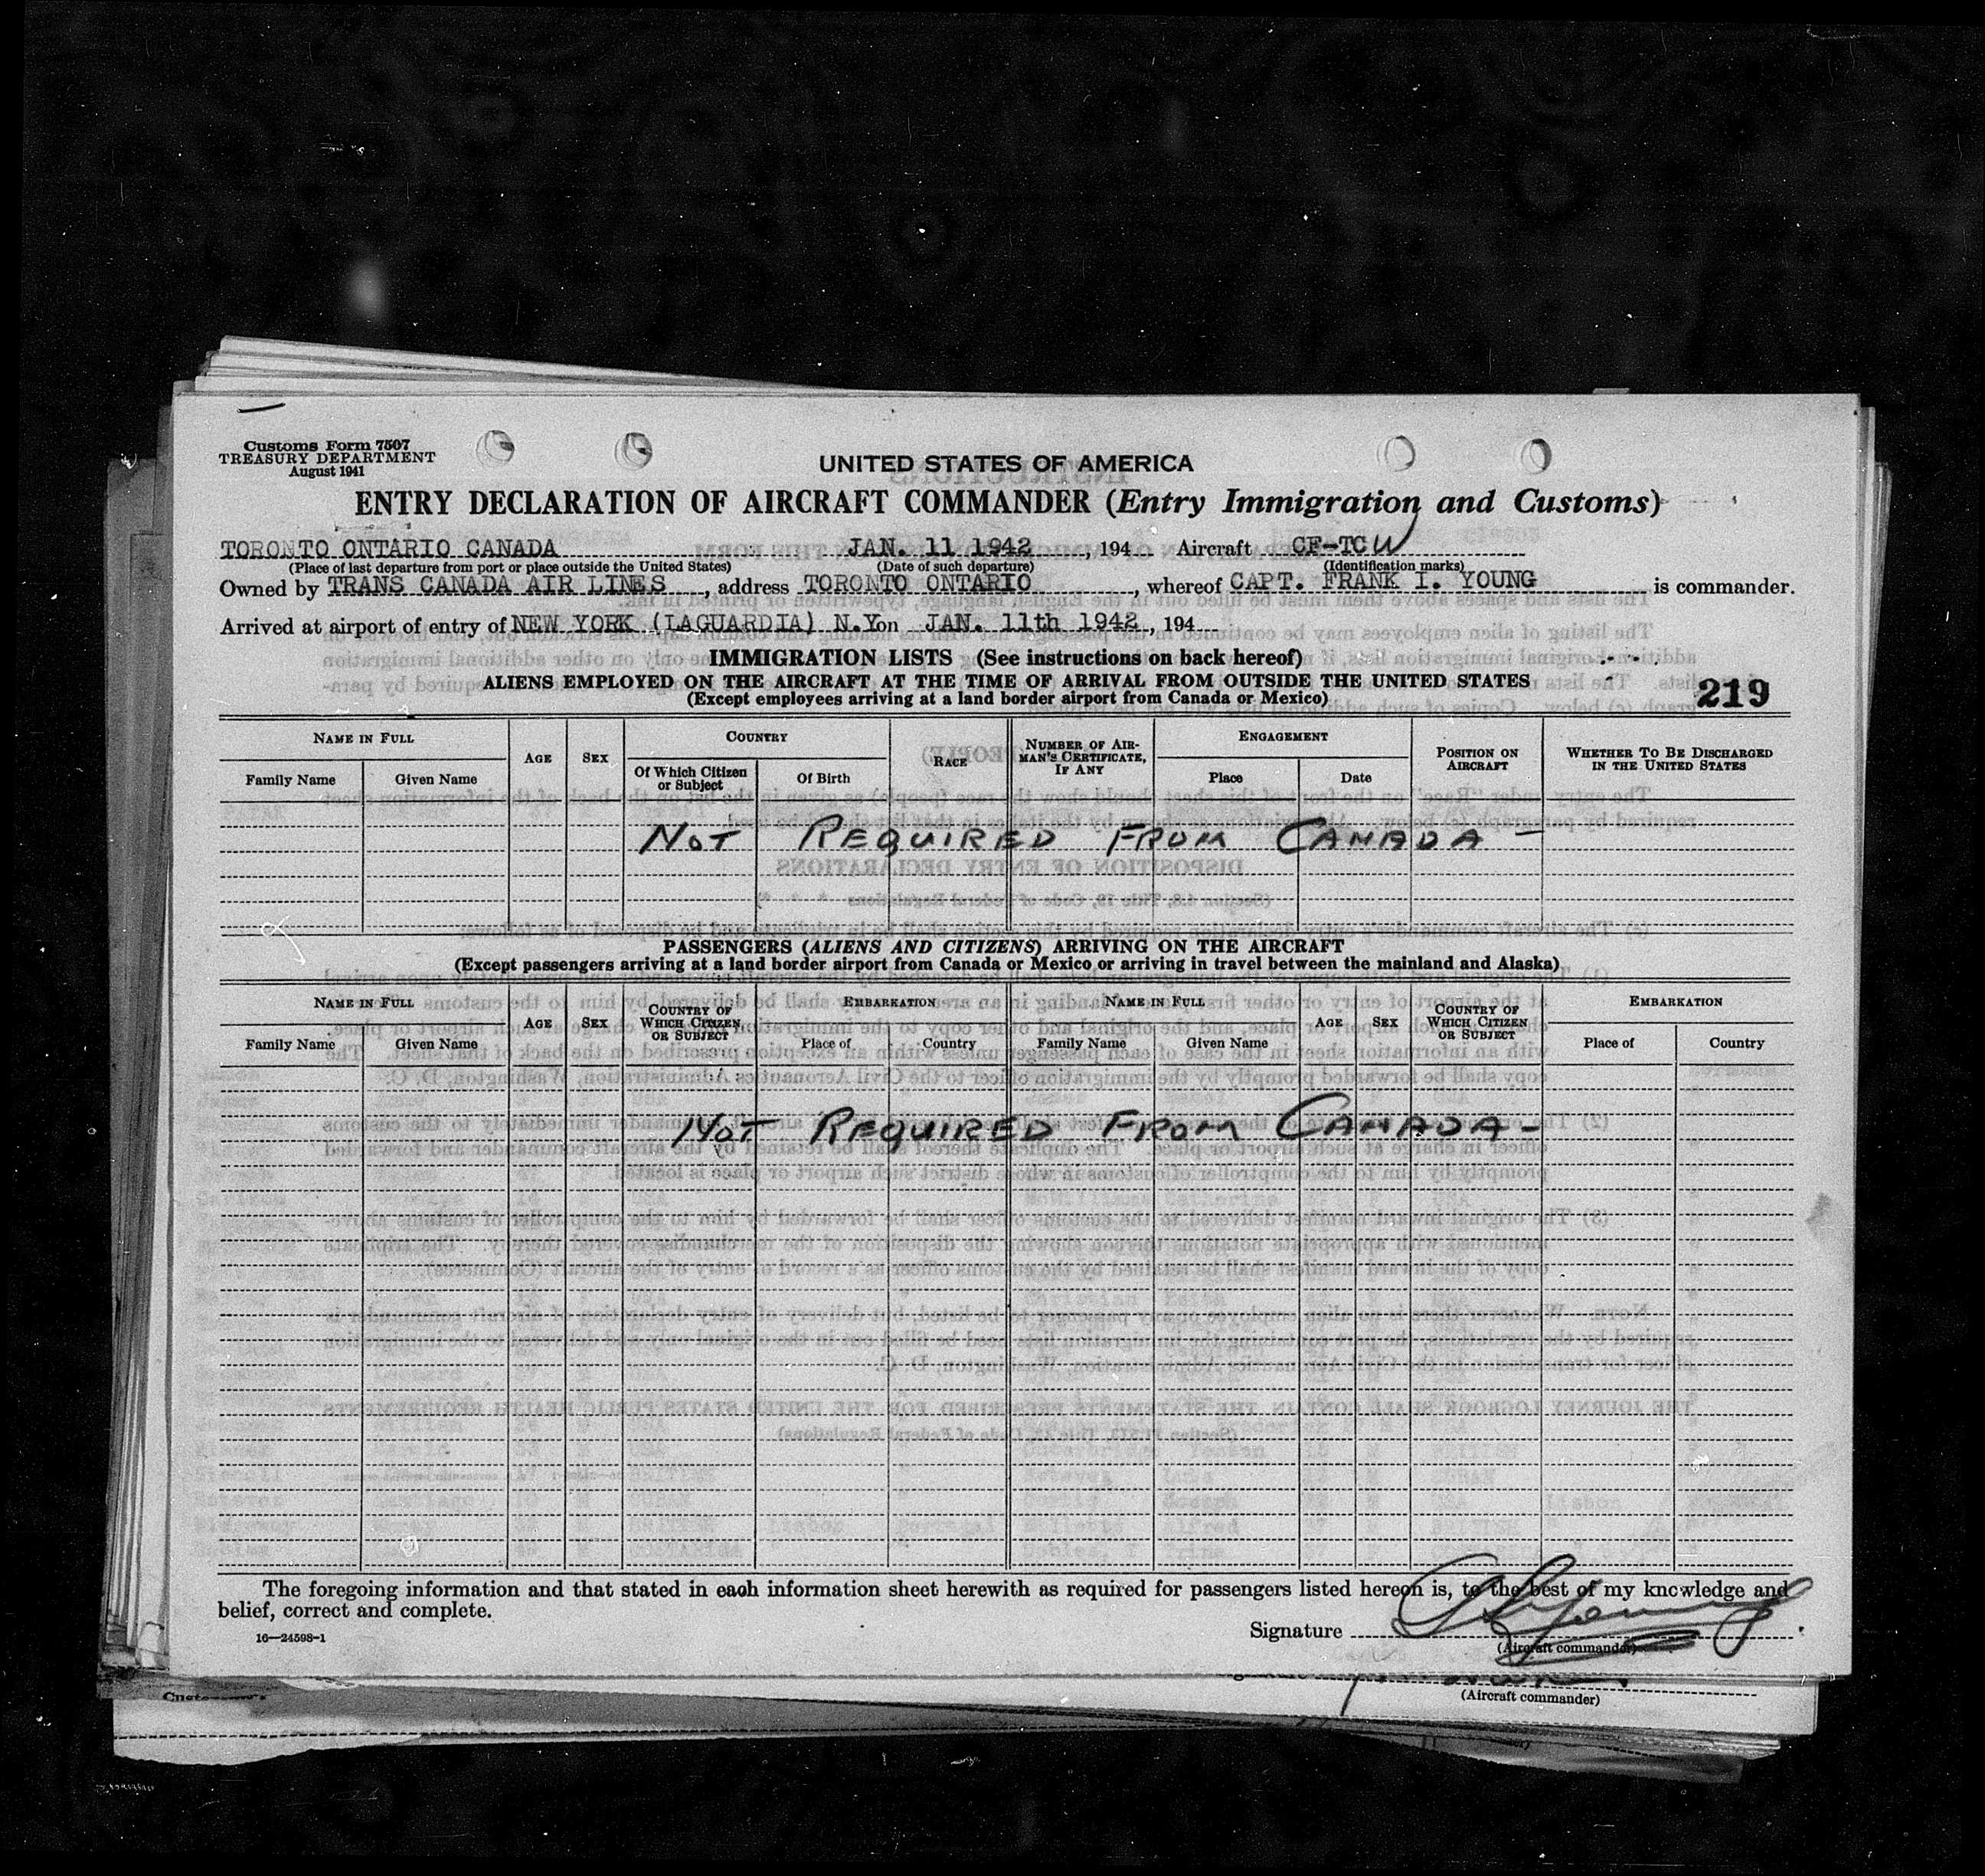 Customs Form 7507
TREASURY DEPARTMENT
August 1941
UNITED STATES OF AMERICA
ENTRY DECLARATION OF AIRCRAFT COMMANDER (Entry Immigration and Customs)
TORONTO ONTARIO CANADA JAN. 11 1942, 194 Aircraft CF-TCW
(Place of last departure from port or place outside the United States) (Date of such departure) (Identification marks)
Owned by TRANS CANADA AIR LINES, address TORONTO ONTARIO, whereof CAPT. FRANK I. YOUNG is commander.
Arrived at airport of entry of NEW YORK (LAGUARDIA) N.Y. on JAN. 11th 1942, 194
IMMIGRATION LISTS (See instructions on back hereof)
ALIENS EMPLOYED ON THE AIRCRAFT AT THE TIME OF ARRIVAL FROM OUTSIDE THE UNITED STATES
(Except employees arriving at a land border airport from Canada or Mexico)
219
NAME IN FULL AGE SEX COUNTRY RACE NUMBER OF AIRMAN'S CERTIFICATE, IF ANY ENGAGEMENT POSITION ON AIRCRAFT WHETHER TO BE DISCHARGED IN THE UNITED STATES
Family Name Given Name Of Which Citizen or Subject Of Birth Place Date
NOT REQUIRED FROM CANADA -
PASSENGERS (ALIENS AND CITIZENS) ARRIVING ON THE AIRCRAFT
(Except passengers arriving at a land border airport from Canada or Mexico or arriving in travel between the mainland and Alaska)
NAME IN FULL AGE SEX COUNTRY OF WHICH CITIZEN OR SUBJECT EMBARKATION NAME IN FULL AGE SEX COUNTRY OF WHICH CITIZEN OR SUBJECT EMBARKATION
Family Name Given Name Place of Country Family Name Given Name Place of Country
NOT REQUIRED FROM CANADA -
The foregoing information and that stated in each information sheet herewith as required for passengers listed hereon is, to the best of my knowledge and
belief, correct and complete.
Signature
(Aircraft commander)
16—24598-1
(Aircraft commander)